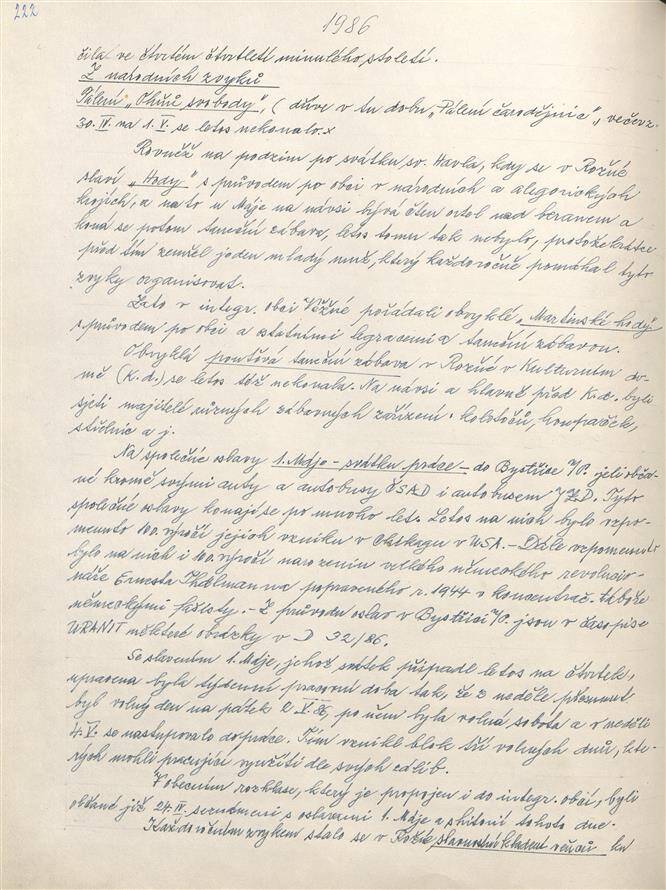 222
1986
čila ve čtvrtém čtvrtletí minulého století.
Z národních zvyků
Pálení "Ohňů svobody", (dříve v tu dobu "Pálení čarodějnic"), večer z
30. IV. na 1. V. se letos nekonalo.x
Rovněž na podzim po svátku sv. Havla, kdy se v Rožné
slaví "Hody" s průvodem po obci v národních a alegorických
krojích, a na to u Máje na návsi bývá čten ortel nad beranem a
koná se potom taneční zábava, letos tomu tak nebylo, protože krátce
před tím zemřel jeden mladý muž, který každoročně pomáhal tyto
zvyky organisovat.
Zato v integr. obci Věžné pořádali obvyklé "Martinské hody"
s průvodem po obci a ostatními legracemi a taneční zábavou.
Obvyklá pouťová taneční zábava v Rožné v Kulturním do-
mě (K.d.) se letos též nekonala. Na návsi a hlavně před K.d. byli
sjetí majitelé různých zábavných zařízení: kolotočů, houpaček,
střelnic a j.
Na společné oslavy 1. Máje - svátku práce - do Bystřice n/P. jeli obča-
né kromě svými auty a autobusy ČSAD i autobusem JZD. Tyto
společné oslavy konají se po mnoho let. Letos na nich bylo vzpo-
menuto 100. výročí jejich vzniku v Chikagu v USA. - Dále vzpomenuto
bylo na nich i 100. výročí narozenin velkého německého revolucio-
náře Ernesta Thälmanna popraveného r. 1944 v koncentrač. táboře
německými fašisty. - Z průvodu oslav v Bystřici n/P. jsou v časopise
URANIT některé obrázky v D 92/86.
Se slavením 1. Máje, jehož svátek připadl letos na čtvrtek,
upravena byla týdenní pracovní doba tak, že z neděle přesunut
byl volný den na pátek 2. V. 86, po něm byla volná sobota a v neděli
4. V. se nastupovalo do práce. Tím vznikl blok tří volných dnů, kte-
rých mohli pracující využíti dle svých zálib.
V obecním rozhlase, který je propojen i do integr. obcí, byli
občané již 24. IV. seznámeni s oslavami 1. Máje a s historií tohoto dne.
Každoročním zvykem stalo se v Rožné slavnostní kladení věnců ku